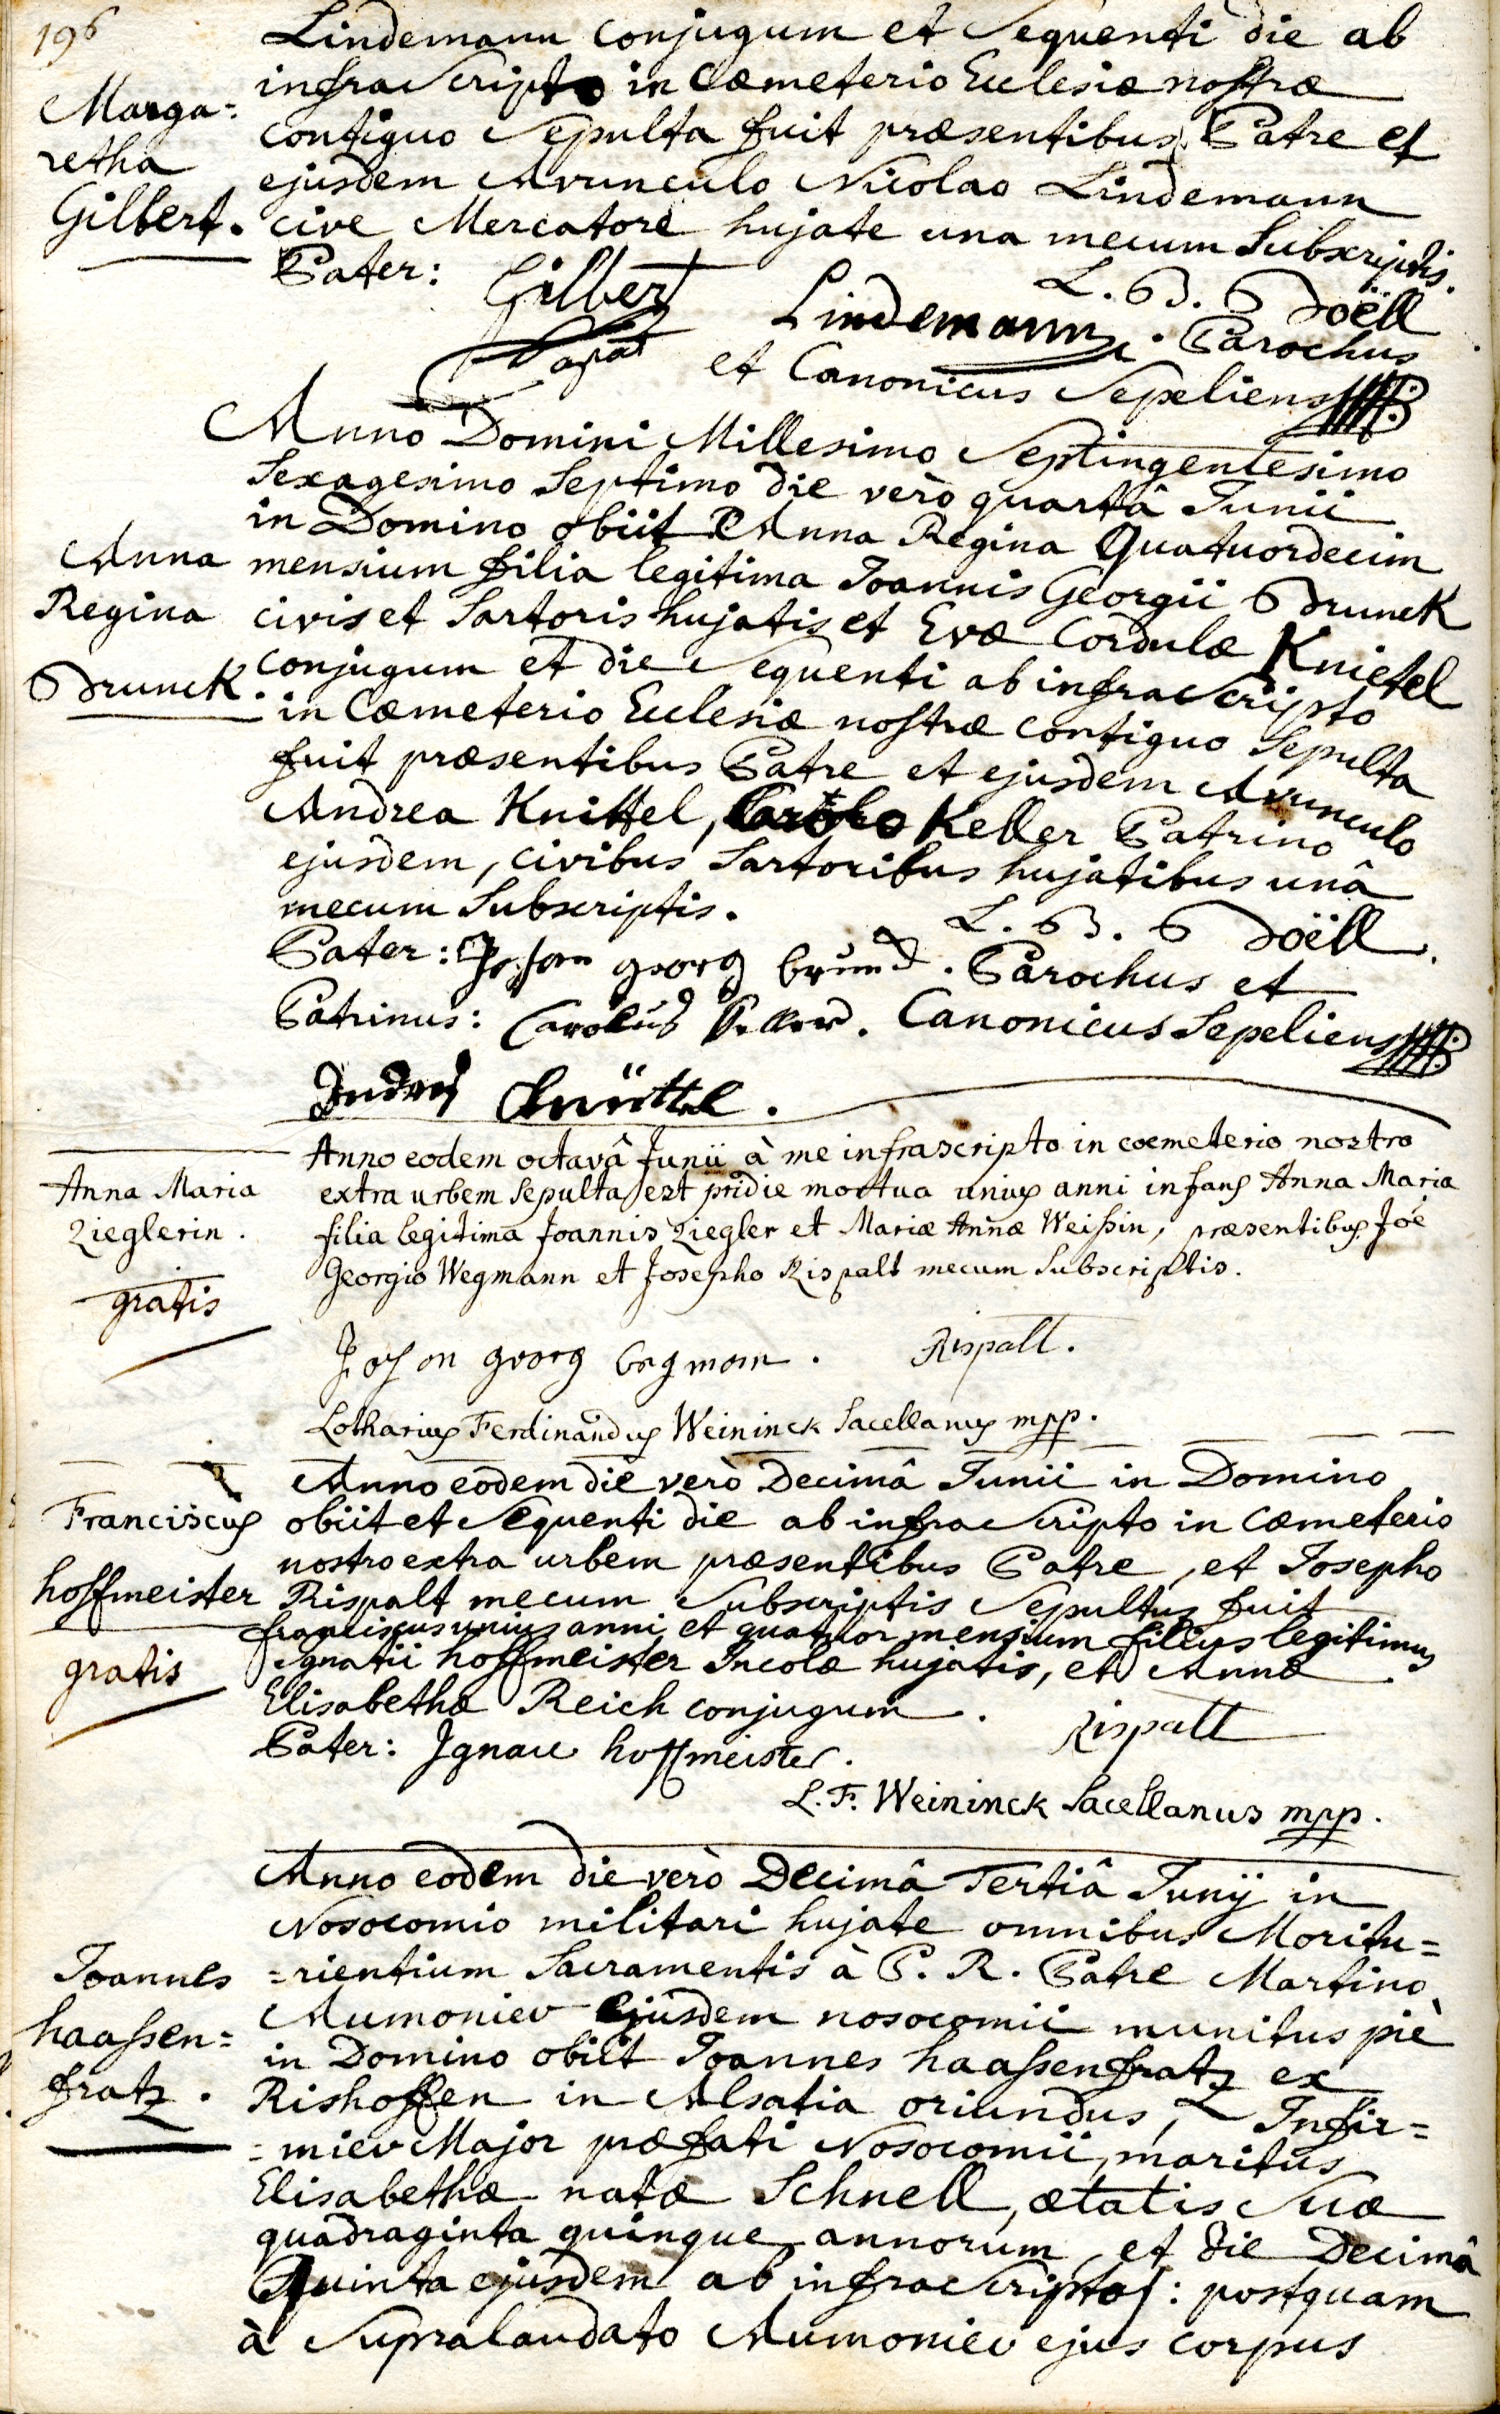 196
Lindemann conjugum et sequenti die ab
infrascripto in Cœmeterio Ecclesiæ nostræ
Marga=
retha
Gilbert.
contiguo sepulta fuit præsentibus Patre et
ejusdem Avunculo Nicolao Lindemann
cive Mercatore hujate una mecum Subscriptis.
Pater: Gilbert Lindemann. L. B. Boëll
Parochus
et Canonicus Sepeliens
Anno Domini Millesimo Septingentesimo
Sexagesimo Septimo die verò quartâ Junii
in Domino obiit Anna Regina Quatuordecim
Anna
Regina
Brunck.
mensium filia legitima Joannis Georgii Brunck
civis et Sartoris hujatis et Evæ Cordulæ Knietel
conjugum et die sequenti ab infrascripto
in Cœmeterio Ecclesiæ nostræ contiguo Sepulta
fuit præsentibus Patre et ejusdem Avunculo
Andrea Knittel, Keller Patrino
ejusdem, civibus Sartoribus hujatibus unâ
mecum Subscriptis.
L. B. Boëll.
Pater: georg Parochus et
Patrinus: Carolus Keller. Canonicus Sepeliens
Andreas Knüttel.
Anno eodem octavâ Junii à me infrascripto in cœmeterio nostro
Anna Maria
Zieglerin.
gratis
extra urbem sepulta est pridie mortua unius anni infans Anna Maria
filia legitima Joannis Ziegler et Mariæ Annæ Weissin, præsentibus Joë
Georgio Wegmann et Josepho Rispalt mecum Subscriptis.
Johan georg wegman. Rispalt.
Lotharius Ferdinandus Weininck Sacellanus mpp.
Anno eodem die verò Decimâ Junii in Domino
Franciscus
hoffmeister
gratis
obiit et sequenti die ab infrascripto in cœmeterio
nostro extra urbem præsentibus Patre, et Josepho
Rispalt mecum Subscriptis Sepultus fuit
franciscus unius anni et quatuor mensium filius legitimus
Ignatii hoffmeister Incolæ hujatis, et Annæ
Elisabethæ Reich conjugum. Rispalt
Pater: Ignace hoffmeister.
L. F. Weininck Sacellanus mpp.
Anno eodem die verò Decimâ Tertiâ Junij in
Nosocomio militari hujate omnibus Moritu=
Joannes
haassen=
fratz.
=rientium Sacramentis à P. R. Patre Martino
Aumonier Ejusdem nosocomii munitus piè
in Domino obiit Joannes haassenfratz ex
Rishoffen in Alsatia oriundus, Infir=
=mier Major præfati Nosocomii, maritus
Elisabethæ natæ Schnell, ætatis suæ
quadraginta quinque annorum, et die Decimâ
Quinta ejusdem ab infrascripto/: postquam
à supralaudato Aumonier ejus corpus